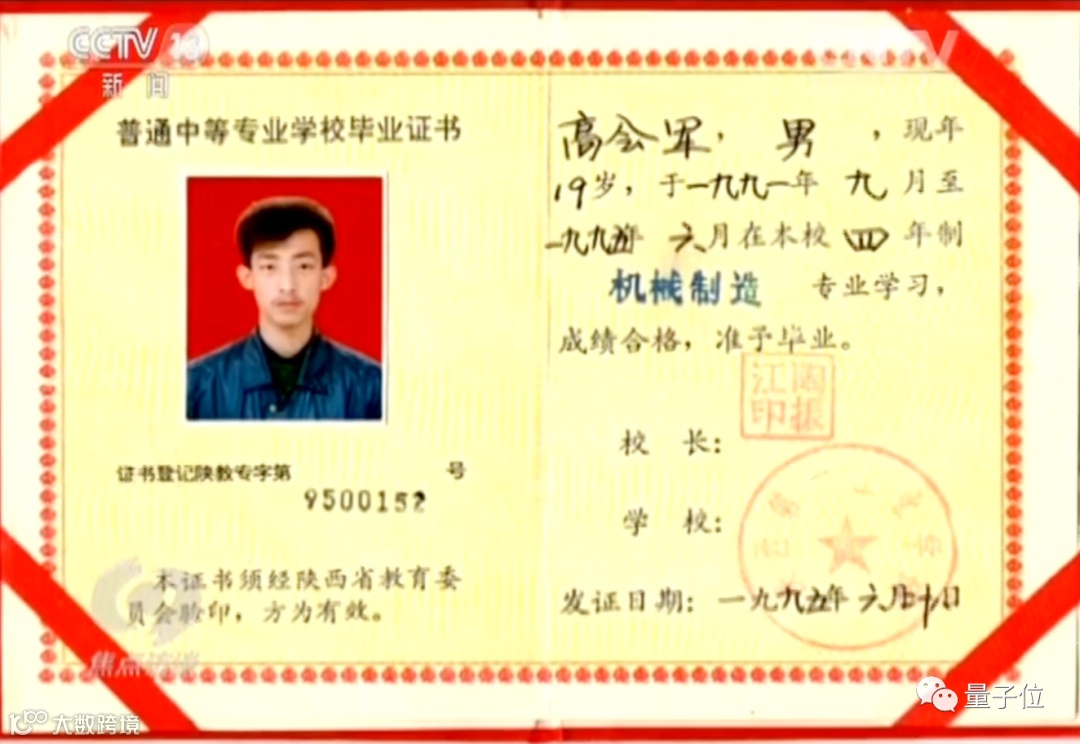 CCTV 13
新闻
普通中等专业学校毕业证书
证书登记陕教专字第 号
9500152
本证书须经陕西省教育委
员会验印，方为有效。
焦点访谈
大数跨境
高会军，男，现年
19岁，于一九九一年九月至
一九九五年六月在本校四年制
机械制造 专业学习，
成绩合格，准予毕业。
校 长：
学 校：
发证日期：一九九五年六月 日
量子位